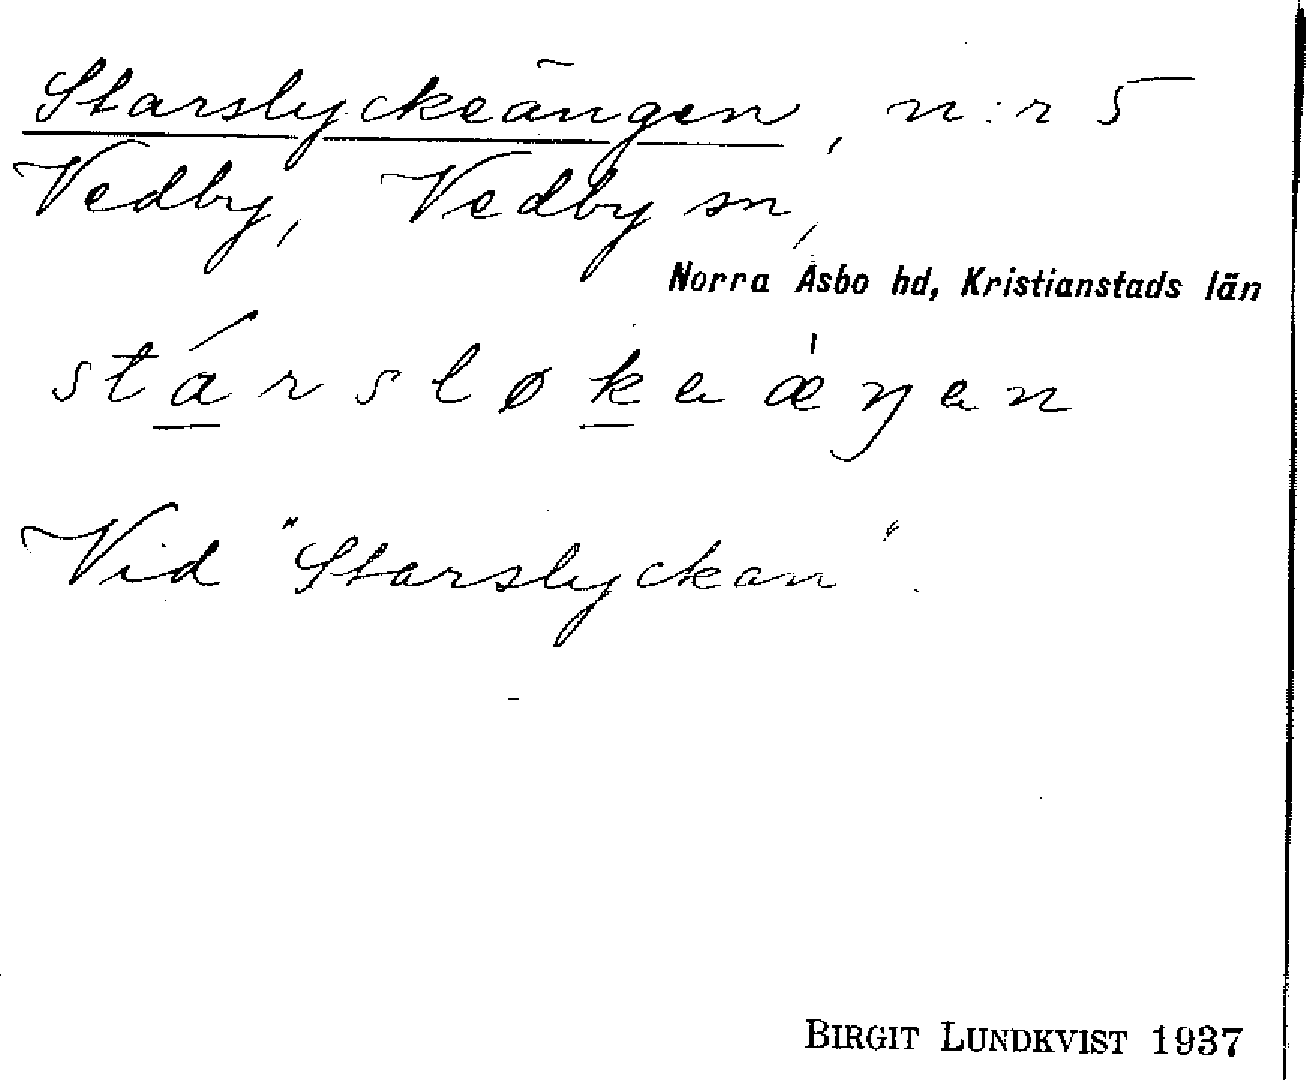 Starslyckeängen, n:r 5
Vedby, Vedby sn,
Norra Åsbo hd, Kristianstads län
stársløkeæ̀ŋen
Vid "Starslyckan".
BIRGIT LUNDKVIST 1937